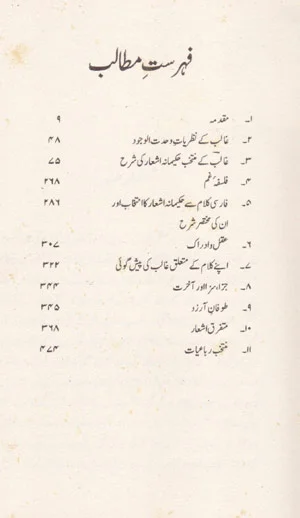 فہرستِ مطالب
۱۔ مقدمہ ۹
۲۔ غالب کے نظریات وحدت الوجود ۴۸
۳۔ غالب کے منتخب حکیمانہ اشعار کی شرح ۷۵
۴۔ فلسفۂ غم ۲۶۸
۵۔ فارسی کلام سے حکیمانہ اشعار کا انتخاب اور ۲۸۶
ان کی مختصر شرح
۶۔ عقل و ادراک ۳۰۷
۷۔ اپنے کلام کے متعلق غالب کی پیش گوئی ۳۲۲
۸۔ جزا، سزا اور آخرت ۳۴۴
۹۔ طوفانِ آرزو ۳۴۵
۱۰۔ متفرق اشعار ۳۶۸
۱۱۔ منتخب رباعیات ۴۷۴